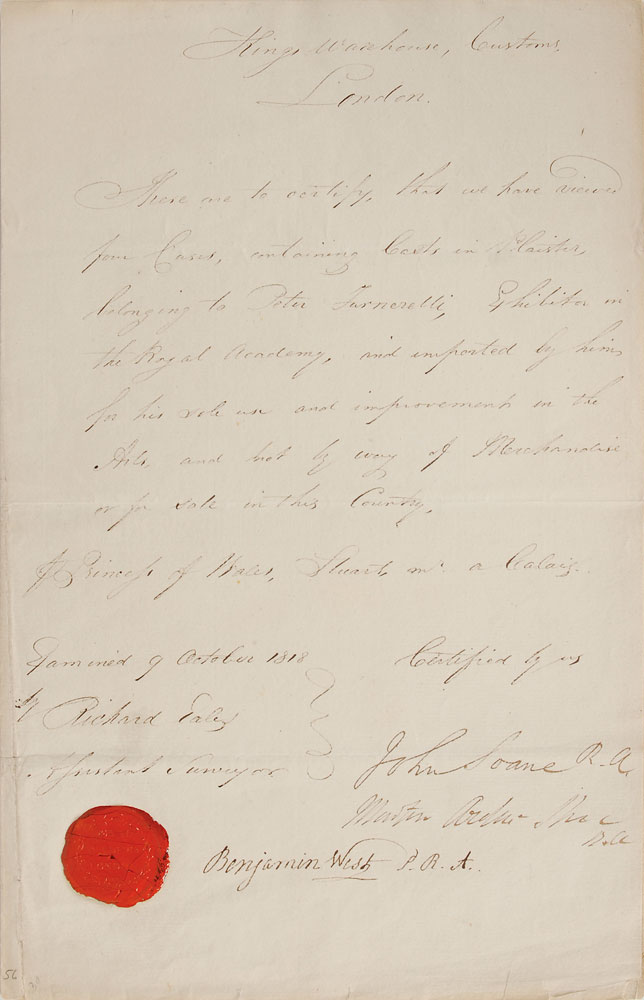 Kings Warehouse, Customs,
London.
These are to certify, that we have viewed
four Cases, containing Casts in Plaister,
belonging to Peter Turnerelli, Exhibitor in
the Royal Academy, and imported by him,
for his sole use and improvement in the
Arts, and not by way of Merchandise
or for sale in this Country.
Princess of Wales, Stuart, mr. a Calais.
Examined 9 October 1818 Certified by us
by Richard
Assistant Surveyor
John Soane R.A.
Martin Archer Shee
R.A
Benjamin West P.R.A.
56